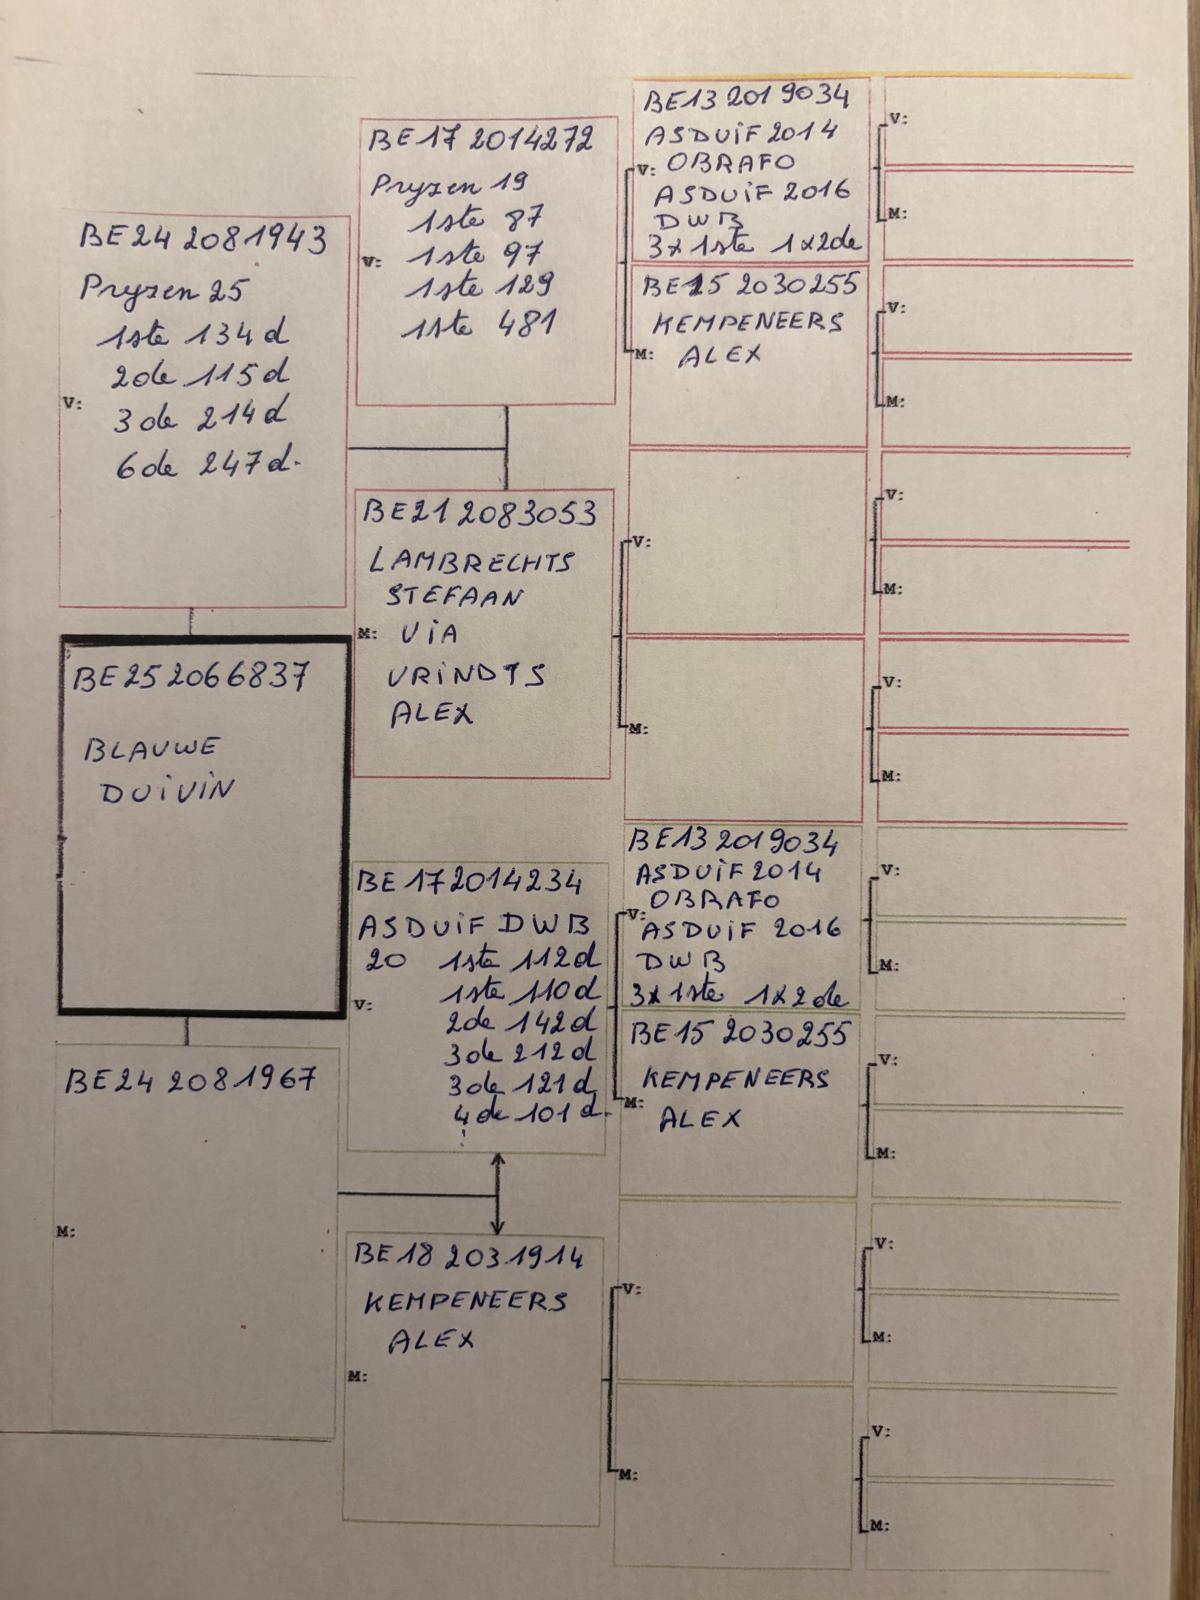 BE24 2081943
Pryzen 25
1ste 134 d
2de 115 d
3de 214 d
6de 247 d.
V:
BE25 2066837
BLAUWE
DUIVIN
BE24 2081967
M:
BE17 2014272
Pryzen 19
1ste 87
V: 1ste 97
1ste 129
1ste 481
BE21 2083053
LAMBRECHTS
STEFAAN
M: VIA
VRINDTS
ALEX
BE17 2014234
ASDUIF DWB
20 1ste 112d
1ste 110d
V: 2de 142d
3de 212d
3de 121d
4de 101d.
BE18 2031914
KEMPENEERS
ALEX
M:
BE13 2019034
ASDUIF 2014
V: OBRAFO
ASDUIF 2016
DWB
3x 1ste 1x2de
BE15 2030255
KEMPENEERS
M: ALEX
V:
M:
BE13 2019034
ASDUIF 2014
OBRAFO
V: ASDUIF 2016
DWB
3x 1ste 1x2de
BE15 2030255
KEMPENEERS
M: ALEX
V:
M:
V:
M:
V:
M:
V:
M:
V:
M:
V:
M:
V:
M:
V:
M:
V:
M: